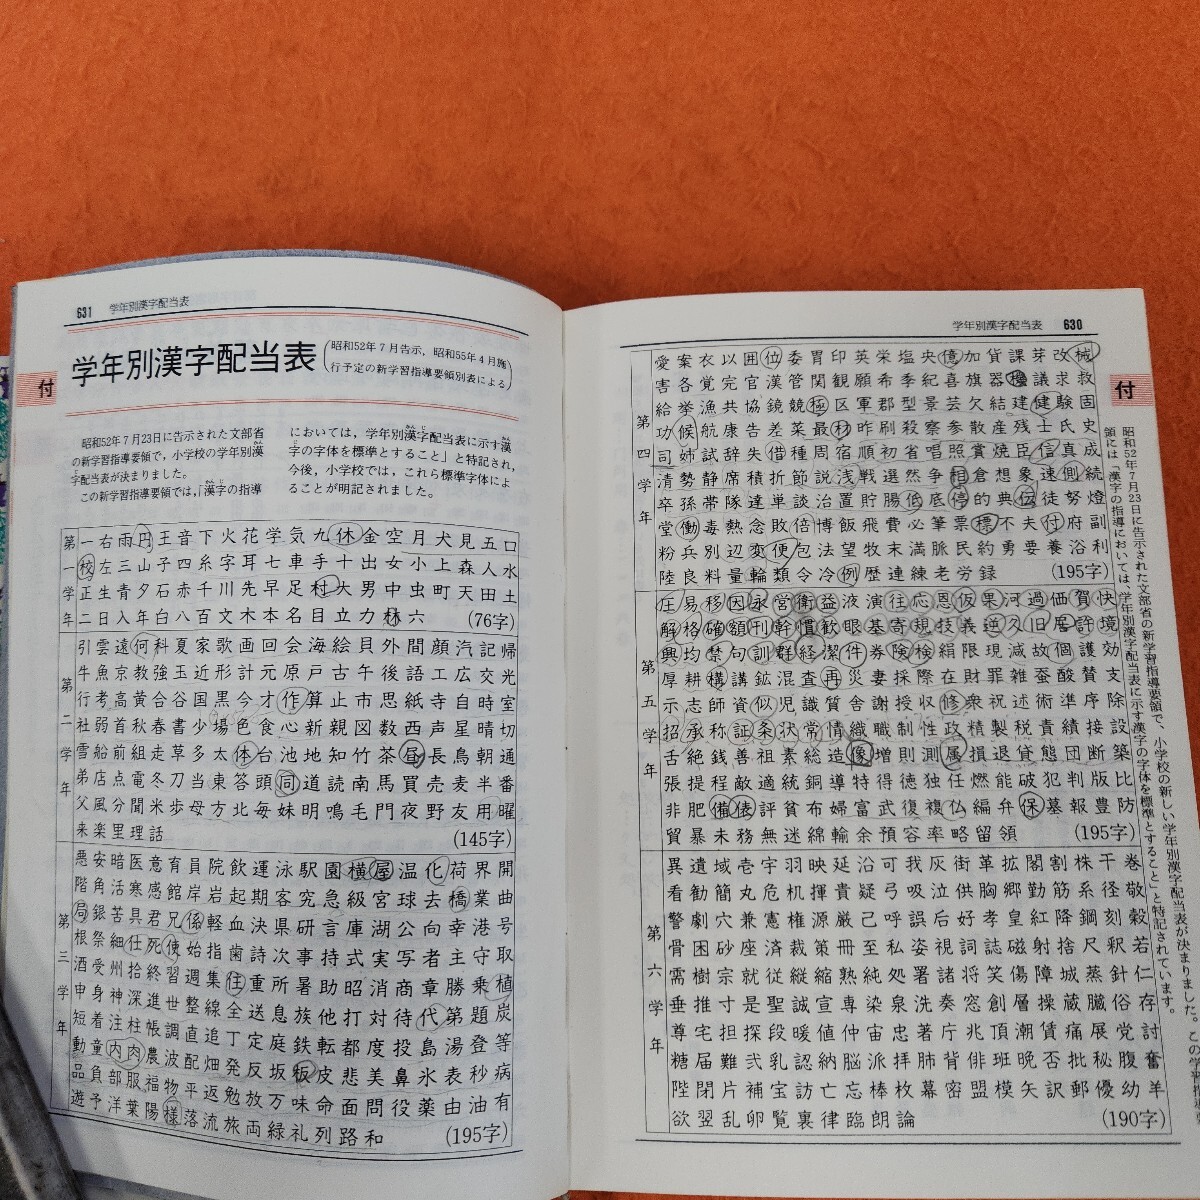 631 学年別漢字配当表
学年別漢字配当表
昭和52年7月告示,昭和55年4月施
行予定の新学習指導要領別表による
付
昭和52年7月23日に告示された文部省
の新学習指導要領で,小学校の学年別漢
字配当表が決まりました。
この新学習指導要領では,「漢字の指導
においては,学年別漢字配当表に示す漢
字の字体を標準とすること」と特記され,
今後,小学校では,これら標準字体によ
ることが明記されました。
第一学年
一右雨円王音下火花学気九休金空月犬見五口
校左三山子四糸字耳七車手十出女小上森人水
正生青夕石赤千川先早足村大男中虫町天田土
二日入年白八百文木本名目立力林六 (76字)
第二学年
引雲遠何科夏家歌画回会海絵貝外間顔汽記帰
牛魚京教強玉近形計元原戸古午後語工広交光
行考高黄合谷国黒今才作算止市思紙寺自時室
社弱首秋春書少場色食心新親図数西声星晴切
雪船前組走草多太体台池地知竹茶昼長鳥朝通
弟店点電冬刀当東答頭同道読南馬買売麦半番
父風分聞米歩母方北毎妹明鳴毛門夜野友用曜
来楽里理話 (145字)
第三学年
悪安暗医意育員院飲運泳駅園横屋温化荷界開
階角活寒感館岸岩起期客究急級宮球去橋業曲
局銀苦具君兄係軽血決県研言庫湖公向幸港号
根祭細仕死使始指歯詩次事持式実写者主守取
酒受州拾終習週集住重所暑助昭消商章勝乗植
申身神深進世整線全送息族他打対待代第題炭
短着注柱帳調直追丁定庭鉄転都度投島湯登等
動童内肉農波配畑発反坂板皮悲美鼻氷表秒病
品負部服福物平返勉放万味命面問役薬由油有
遊予洋葉陽様落流旅両緑礼列路和 (195字)
学年別漢字配当表 630
付
第四学年
愛案衣以囲位委胃印英栄塩央億加貨課芽改械
害各覚完官漢管関観願希季紀喜旗器機議求救
給挙漁共協鏡競極区軍郡型景芸欠結建健験固
功候航康告差菜最材昨刷殺察参散産残士氏史
司姉試辞失借種周宿順初省唱照賞焼臣信真成
清勢静席積折節説浅戦選然争相倉想象速側続
卒孫帯隊達単談治置貯腸低底停的典伝徒努燈
堂働毒熱念敗倍博飯飛費必筆票標不夫付府副
粉兵別辺変便包法望牧末満脈民約勇要養浴利
陸良料量輪類令冷例歴連練老労録 (195字)
第五学年
圧易移因永営衛益液演往応恩仮果河過価賀快
解格確額刊幹慣歓眼基寄規技義逆久旧居許境
興均禁句訓群経潔件券険検絹限現減故個護効
厚耕構講鉱混査再災妻採際在財罪雑酸賛支
示志師資似児識質舎謝授収修衆祝述術準序除
招承称証条状常情織職制性政精製税責績接設
舌絶銭善祖素総造像増則測属損退貸態団断築
張提程敵適統銅導特得徳独任燃能破犯判版比
非肥備俵評貧布婦富武復複仏編弁保墓報豊防
貿暴未務無迷綿輸余預容率略留領 (195字)
第六学年
異遺域壱宇羽映延沿可我灰街革拡閣割株干巻
看勧簡丸危机揮貴疑弓吸泣供胸郷勤筋系径敬
警劇穴兼憲権源厳己呼誤后好孝皇紅降鋼刻穀
骨困砂座済裁策冊至私姿視詞誌磁射捨尺釈若
需樹宗就従縦縮熟純処署諸将笑傷障城蒸針仁
垂推寸是聖誠宣専染泉洗奏窓創層操蔵臓俗存
尊宅担探段暖値仲宙忠著庁兆頂潮賃痛展党討
糖届難弐乳認納脳派拝肺背俳班晩否批秘腹奮
陛閉片補宝訪亡忘棒枚幕密盟模矢訳郵優幼羊
欲翌乱卵覧裏律臨朗論 (190字)
昭和52年7月23日に告示された文部省の新学習指導要領で,小学校の新しい学年別漢字配当表が決まりました。
領には「漢字の指導においては,学年別漢字配当表に示す漢字の字体を標準とすること」と特記されています。